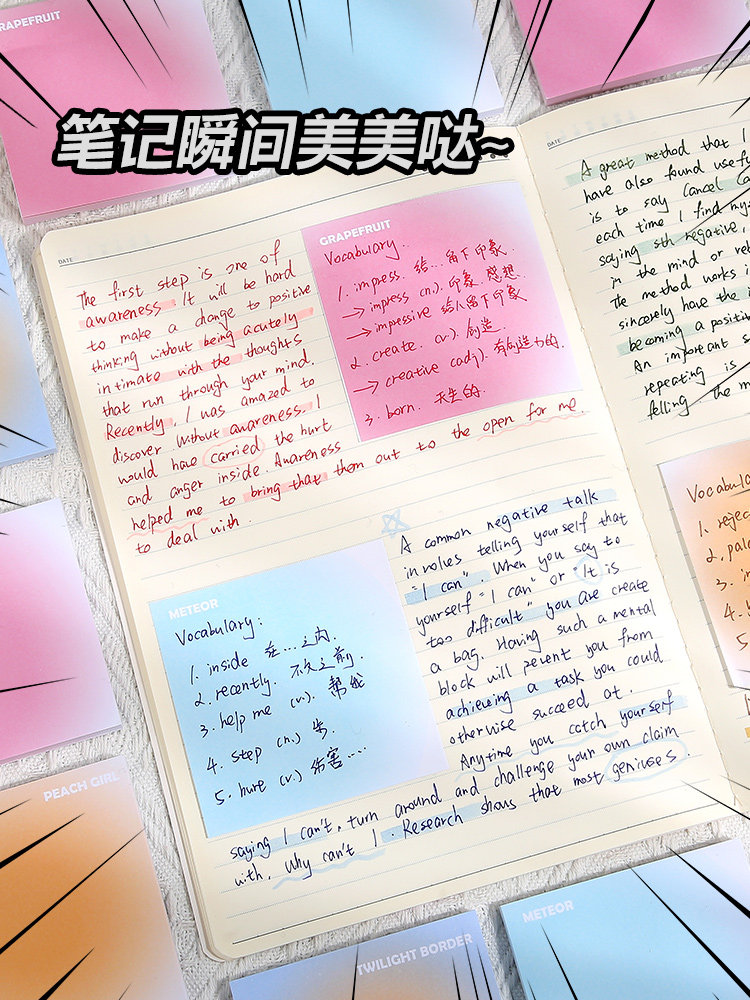 GRAPEFRUIT
笔记瞬间美美哒~
DATE
The first step is one of
awareness. It will be hard
to make a change to positive
thinking without being acutely
intimate with the thoughts
that run through your mind.
Recently, I was amazed to
discover without awareness. I
would have carried the hurt
and anger inside. Awareness
helped me to bring that them out to the open for me
to deal with.
GRAPEFRUIT
Vocabulary.
1. impress. 给...留下印象.
→ impress (n.). 印象. 感想.
→ impressive 给人留下印象
2. create. (v). 创造.
→ creative (adj). 有创造力的.
3. born. 天生的.
METEOR
Vocabulary:
1. inside 在...之内.
2. recently. 不久之前.
3. help me (v.). 帮我
4. step (n.) 步.
5. hure (v.) 伤害....
A common negative talk
involes telling yourself that
"I can". When you say to
yourself "I can" or "It is
too difficult" you are create
a bag. Having such a mental
block will pevent you from
achieving a task you could
otherwise succeed at.
Anytime you catch yourself
saying I can't, turn around and challenge your own claim
with, Why can't I. Research shows that most geniuses.
DATE
A great method that I
have also found usefu
is to say Cancel Ca
each time I find my
saying sth negative,
in the mind or re
The method works i
sincerely have the i
becoming a positiv
An important s
repeating is
felling the m
Vocabula
1. rejec
2. pala
3. in
4.
5.
PEACH GIRL
TWILIGHT BORDER
METEOR